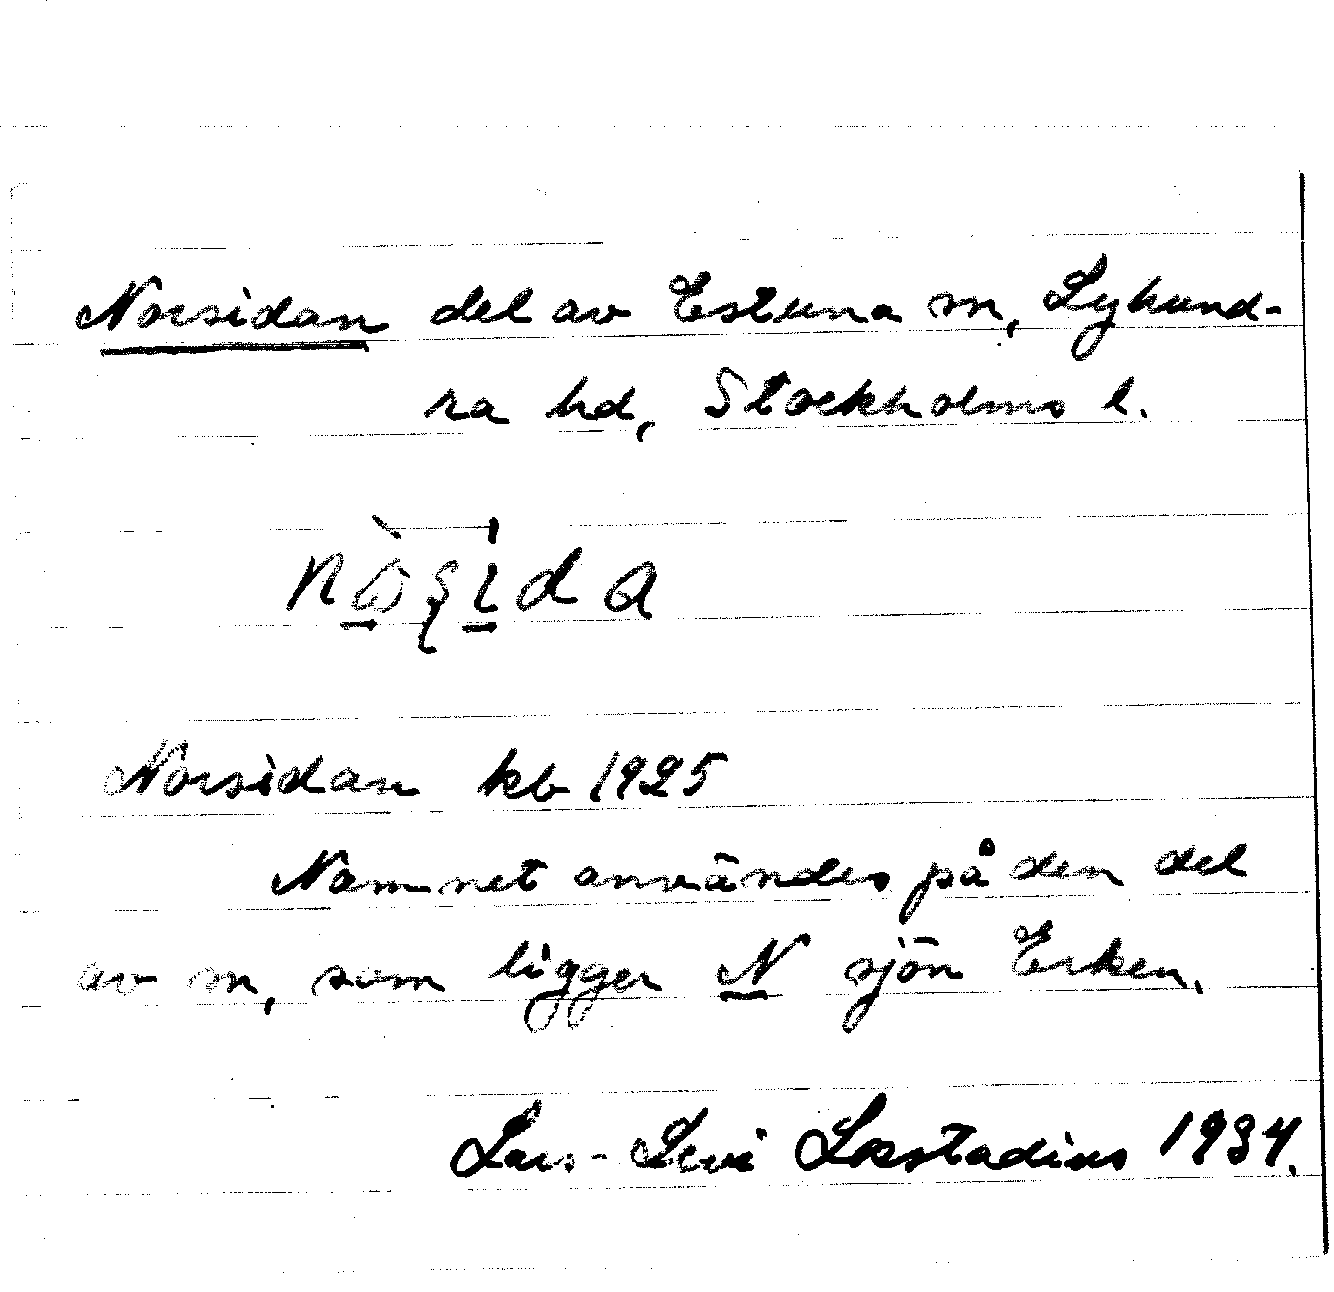 Norsidan del av Estuna sn, Lyhund-
ra hd, Stockholms l.
Norsidan kb 1925
Namnet användes på den del
av sn, som ligger N sjön Erken.
Lars-Levi Læstadius 1934.